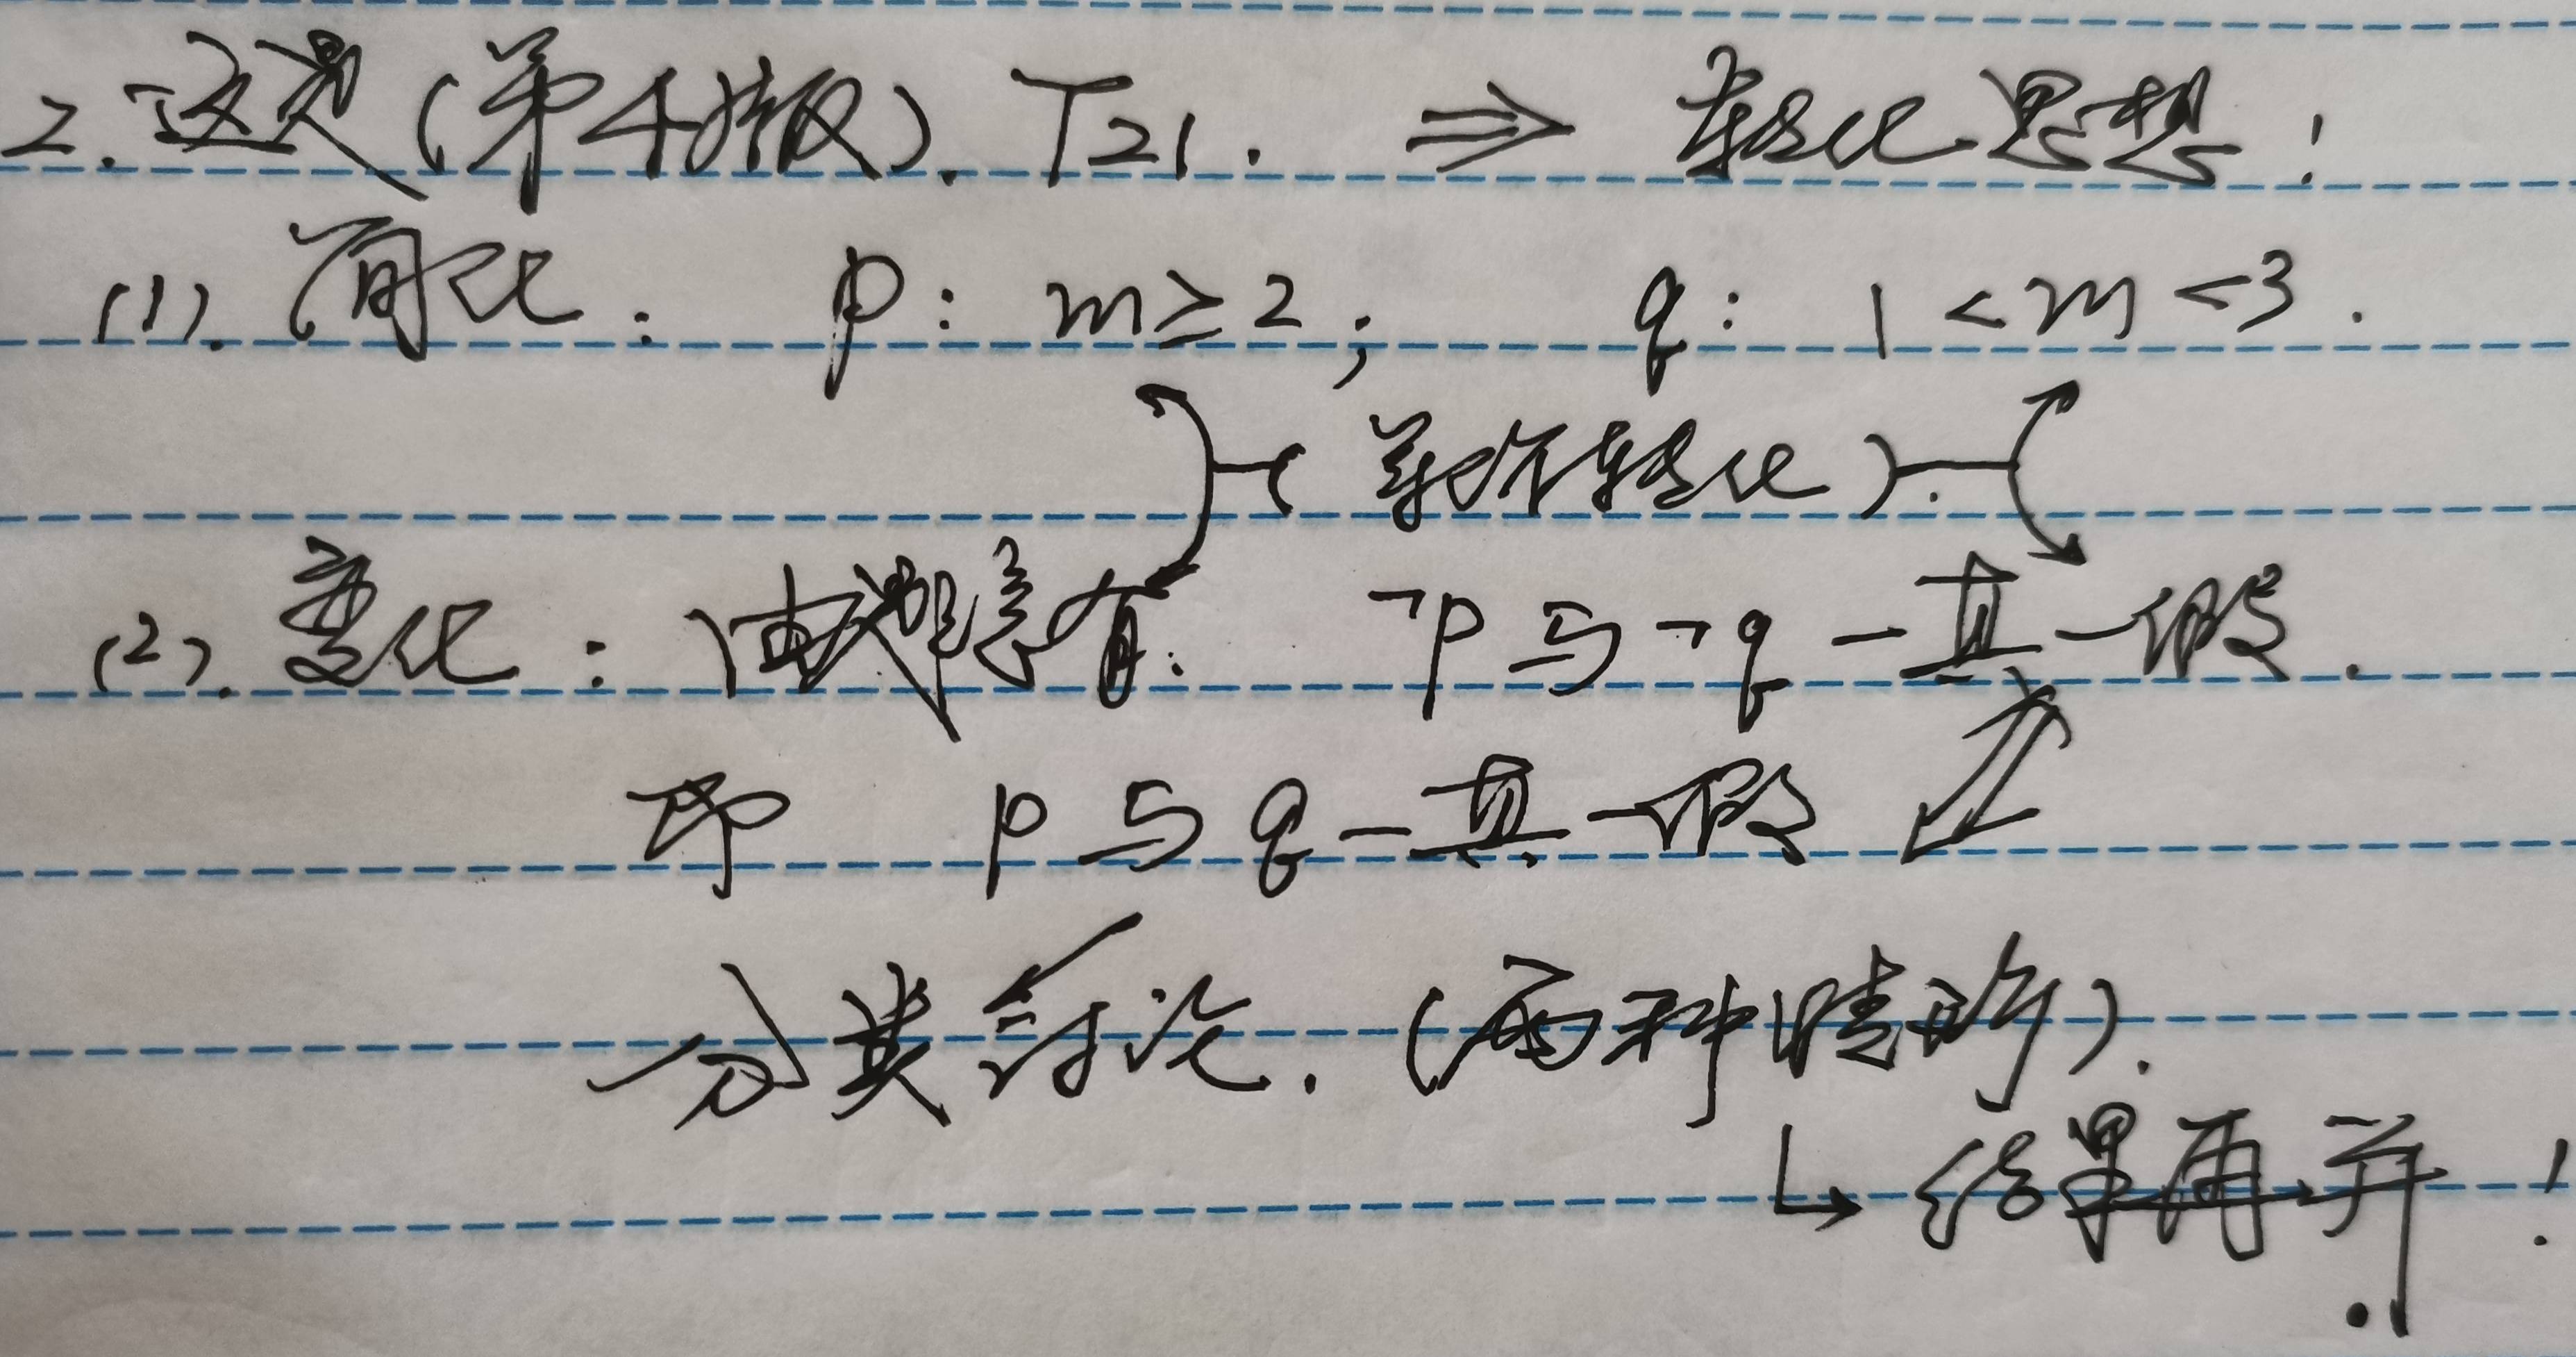 2. 这是(第4版). T21. ⇒ 转化思想!
(1). 简化: p: m≥2; q: 1<m<3.
(等价转化).
(2). 变化: 由题意有: ¬p与¬q一真一假.
即 p与q一真一假
分类讨论. (两种情形).
↳ 结果再并!